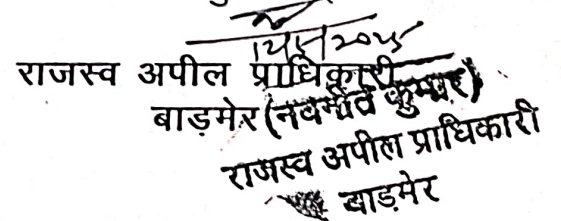 राजस्व अपील प्राधिकारी
बाड़मेर (नवनीत कुमार)
राजस्व अपील प्राधिकारी
बाड़मेर